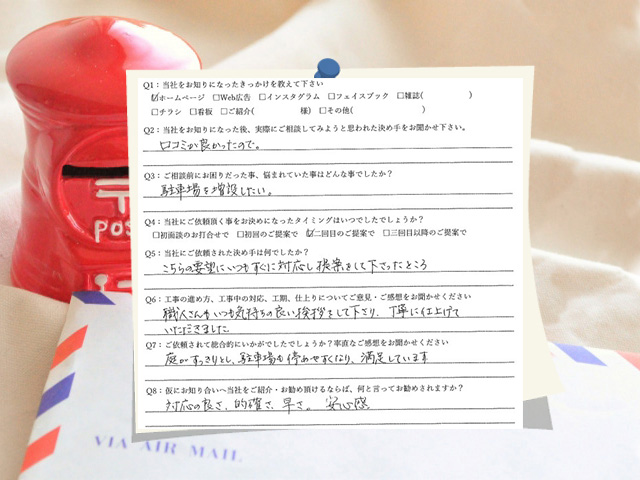 Q1：当社をお知りになったきっかけを教えて下さい
☑ホームページ □Web広告 □インスタグラム □フェイスブック □雑誌( )
□チラシ □看板 □ご紹介( 様) □その他( )
Q2：当社をお知りになった後、実際にご相談してみようと思われた決め手をお聞かせ下さい。
口コミが良かったので。
Q3：ご相談前にお困りだった事、悩まれていた事はどんな事でしたか？
駐車場を増設したい。
Q4：当社にご依頼頂く事をお決めになったタイミングはいつでしたでしょうか？
□初面談のお打合せで □初回のご提案で ☑二回目のご提案で □三回目以降のご提案で
Q5：当社にご依頼された決め手は何でしたか？
こちらの要望にいつもすぐに対応し提案をして下さったところ
Q6：工事の進め方、工事中の対応、工期、仕上りについてご意見・ご感想をお聞かせください
職人さんもいつも気持ちの良い挨拶をして下さり、丁寧に仕上げて
いただきました
Q7：ご依頼されて総合的にいかがでしたでしょうか？率直なご感想をお聞かせください
庭がすっきりとし、駐車場も停めやすくなり、満足しています
Q8：仮にお知り合いへ当社をご紹介・お勧め頂けるならば、何と言ってお勧めされますか？
対応の良さ、的確さ、早さ。 安心感
POS
VIA AIR MAIL